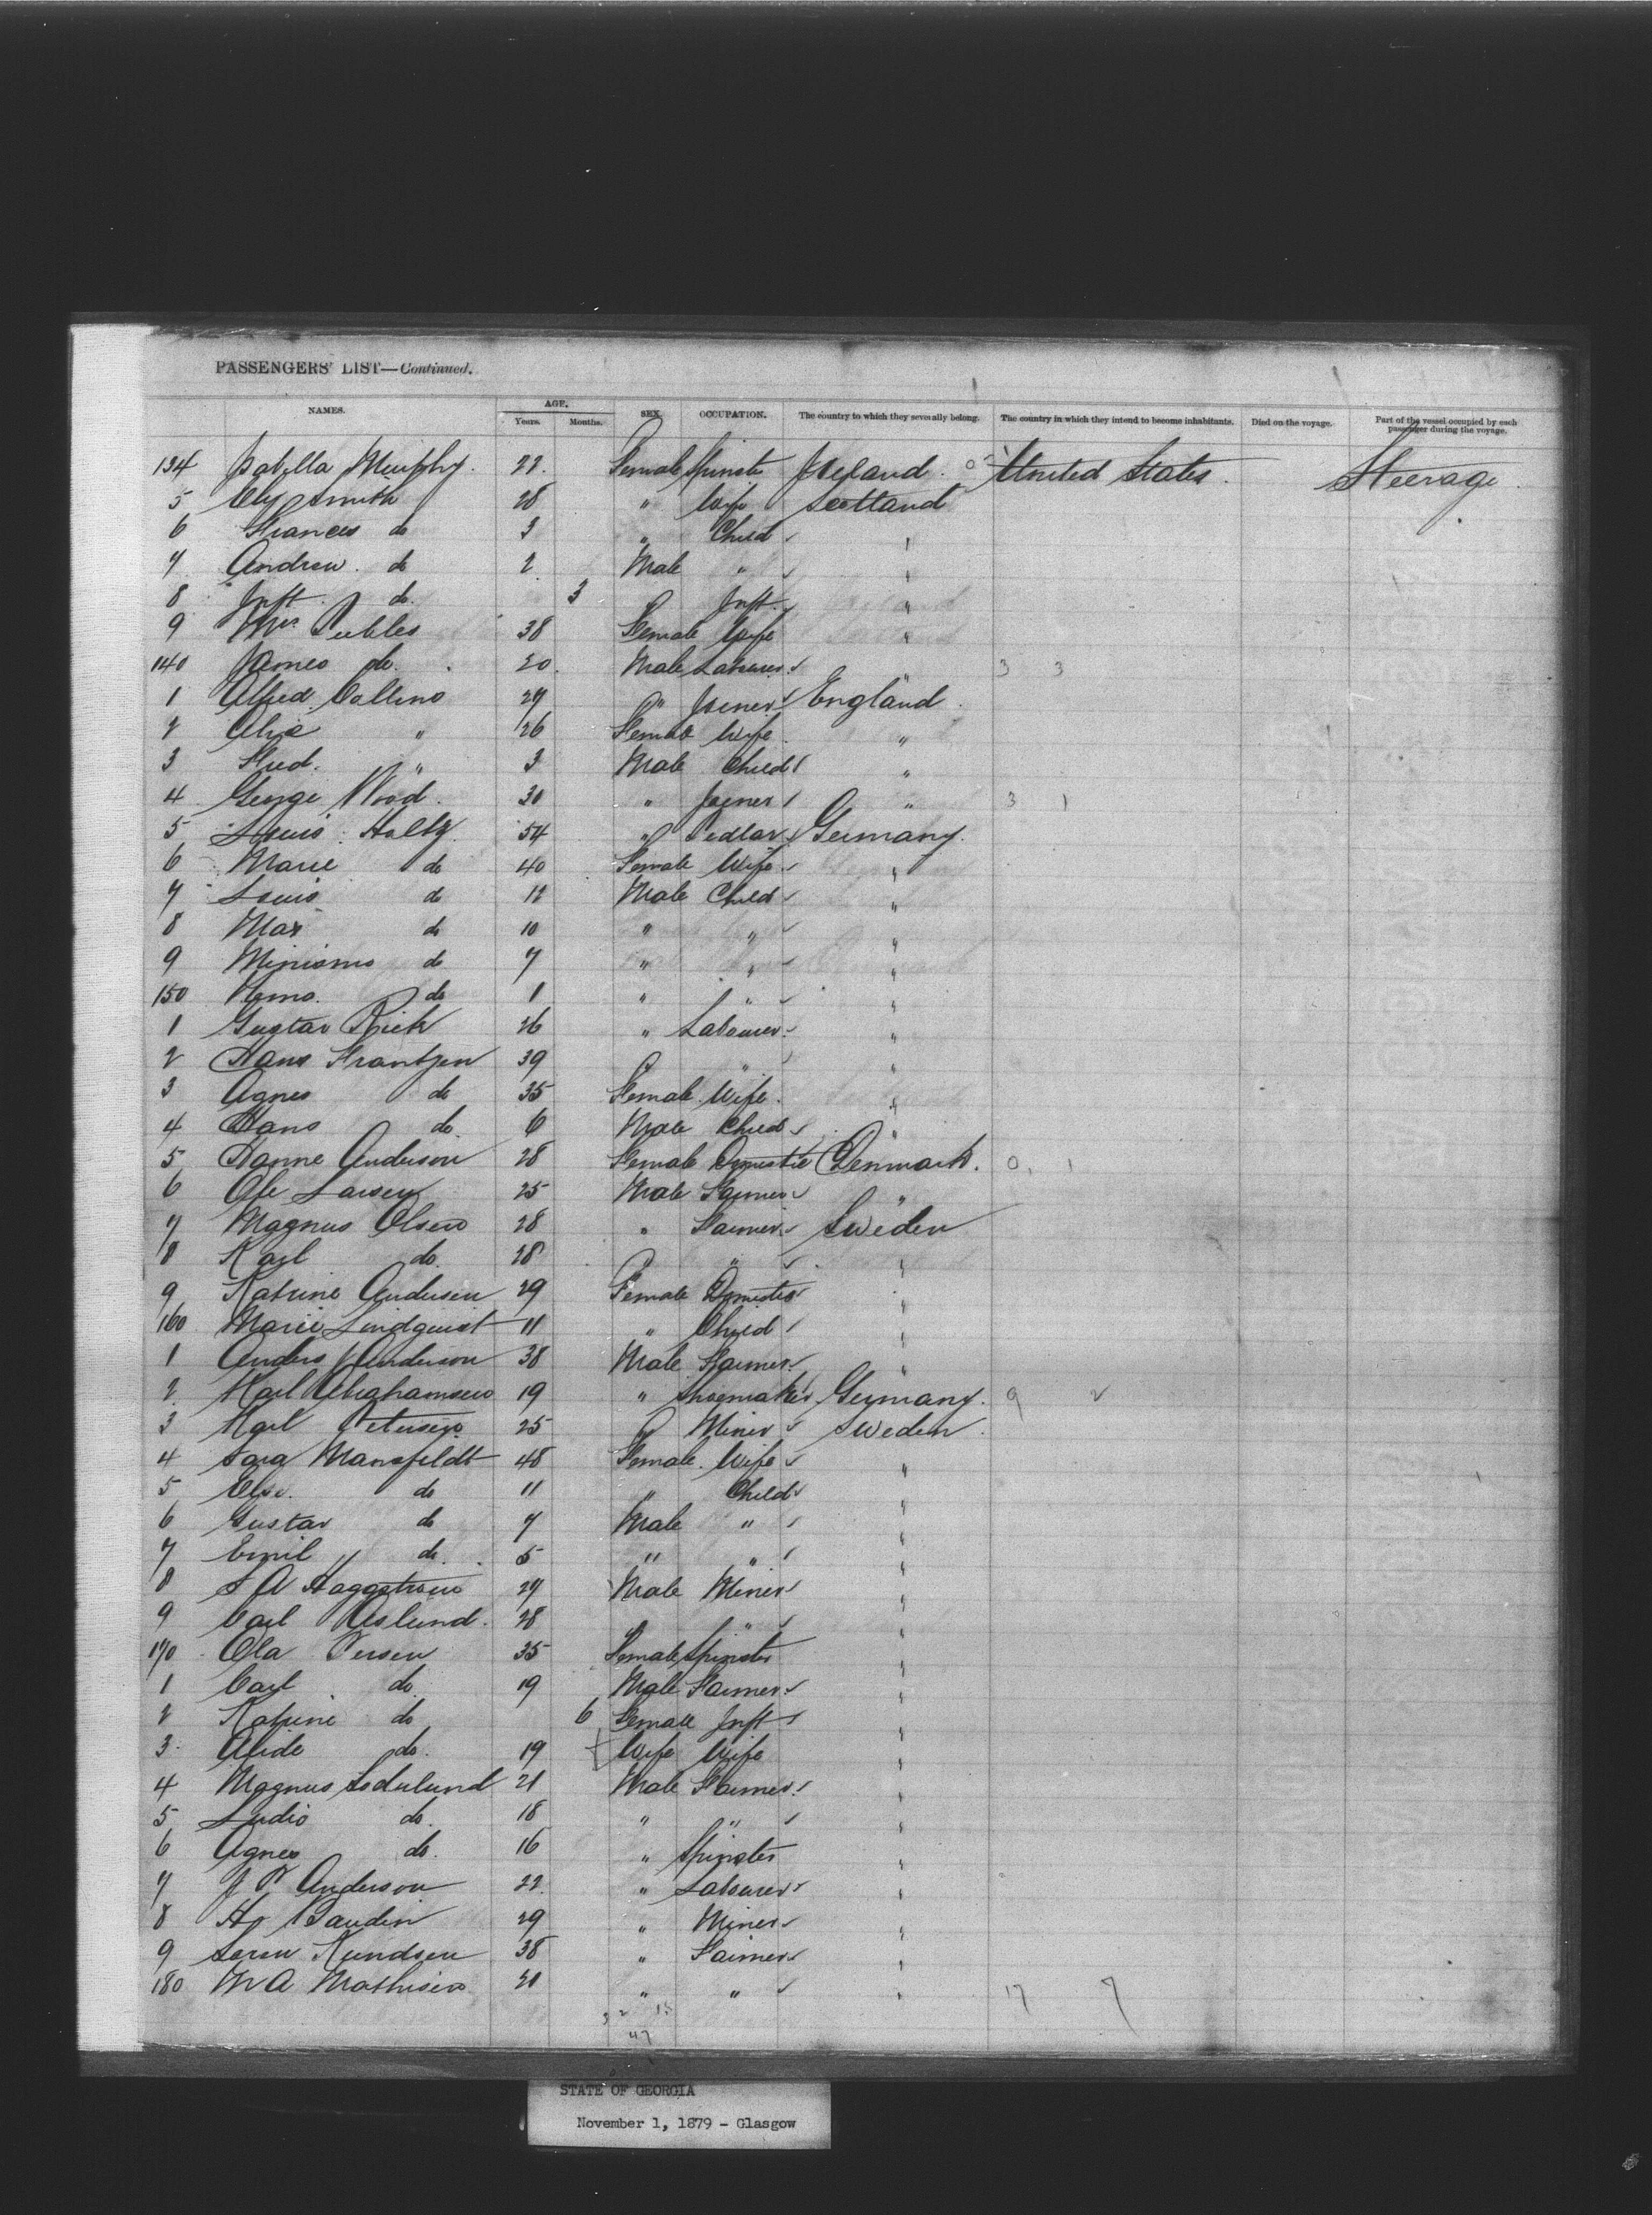 PASSENGERS' LIST—Continued.
NAMES. AGE. Years. Months. SEX. OCCUPATION. The country to which they severally belong. The country in which they intend to become inhabitants. Died on the voyage. Part of the vessel occupied by each passenger during the voyage.
134 Isabella Murphy. 22. Female Spinster Ireland. United States. Steerage.
5 Smith 28 " Wife Scotland
6 Frances do 3 " Child "
7 Andrew. do 2 Male " "
8 Inft. do. 3 Inft. "
9 Mrs Peebles 38 Female Wife "
140 James do. 20. Male Labourer "
1 Alfred Collins 29 " Joiner England.
2 " 26 Female Wife "
3 Fred. " 3 Male Child "
4 George Wood. 30 " Joiner " 3 1
5 Louis Holtz 54 " Pedlar Germany.
6 Marie do 40 Female Wife "
7 Louis do 12 Male Child "
8 Max do 10 " " "
9 do 7 " " "
150 do 1 " " "
1 Gustav 26 " Labourer "
2 Hans Frantzen 39 " "
3 Agnes do 35 Female Wife. "
4 Hans do. 6 Male Child "
5 Hanne Anderson 28 Female Domestic Denmark. 0. 1
6 Ole Larsen 25 Male Farmer "
7 Magnus Olsen 28 " Farmer Sweden
8 Karl do. 28 " "
9 Katrine Andersen 29 Female Domestic "
160 Marie Lindquist 11 " Child "
1 Anders Anderson 38 Male Farmer "
2 Karl Abrahamsen 19 " Shoemaker Germany. 9
3 Karl Petersen 25 Miner Sweden.
4 Sara Mansfeldt 48 Female. Wife "
5 Else. do 11 " Child "
6 Gustav do 7 Male " "
7 Emil do. 5 " " "
8 S A Haggstrom 29 Male Miner "
9 Carl Aslund. 28 " " "
170 Ola Persen 35 Female Spinster "
1 Carl do. 19 Male Farmer "
2 Katrine do 6 Female Inft "
3 do. 19 Wife Wife "
4 Magnus Soderlund 21 Male Farmer "
5 do. 18 " " "
6 Agnes do. 16 " Spinster "
7 J P Anderson 22. " Labourer "
8 29 " Miner "
9 Soren Kundsen 38 " Farmer "
180 M A Mathisen 20 " " " 17 7
47
STATE OF GEORGIA
November 1, 1879 - Glasgow